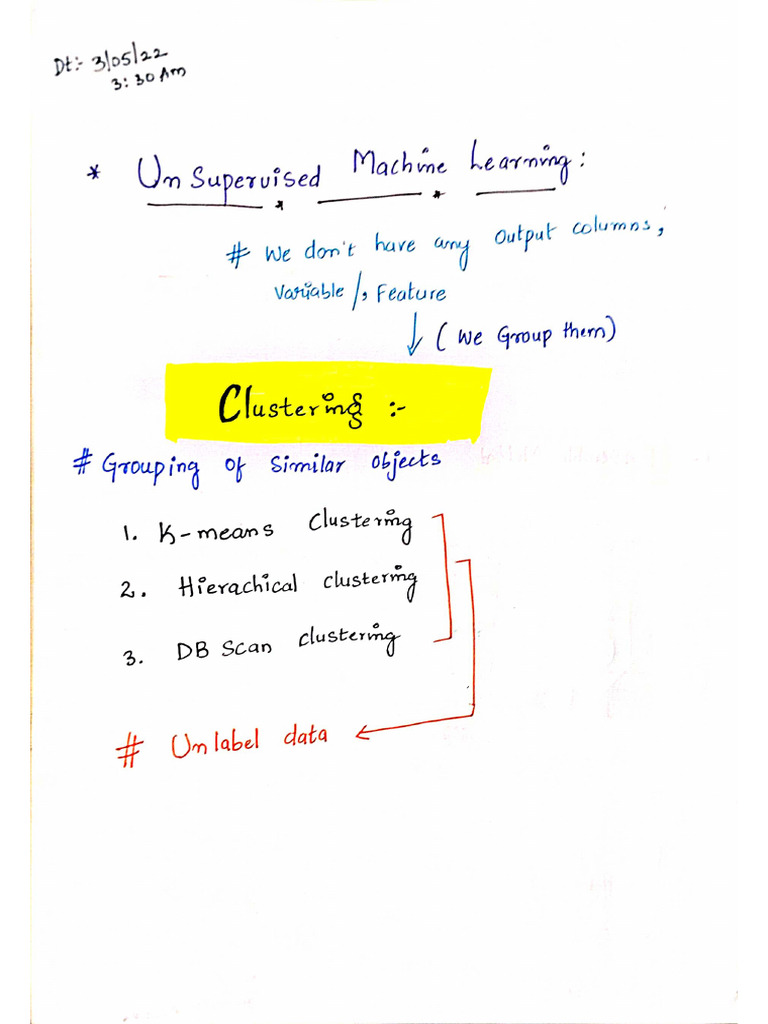 Dt:- 3/05/22
3:30 Am
* UnSupervised Machine Learning:
# We don't have any output columns,
variable/, Feature
(We Group them)
Clustering :-
# Grouping of similar objects
1. K-means Clustering
2. Hierachical clustering
3. DB Scan clustering
# Unlabel data